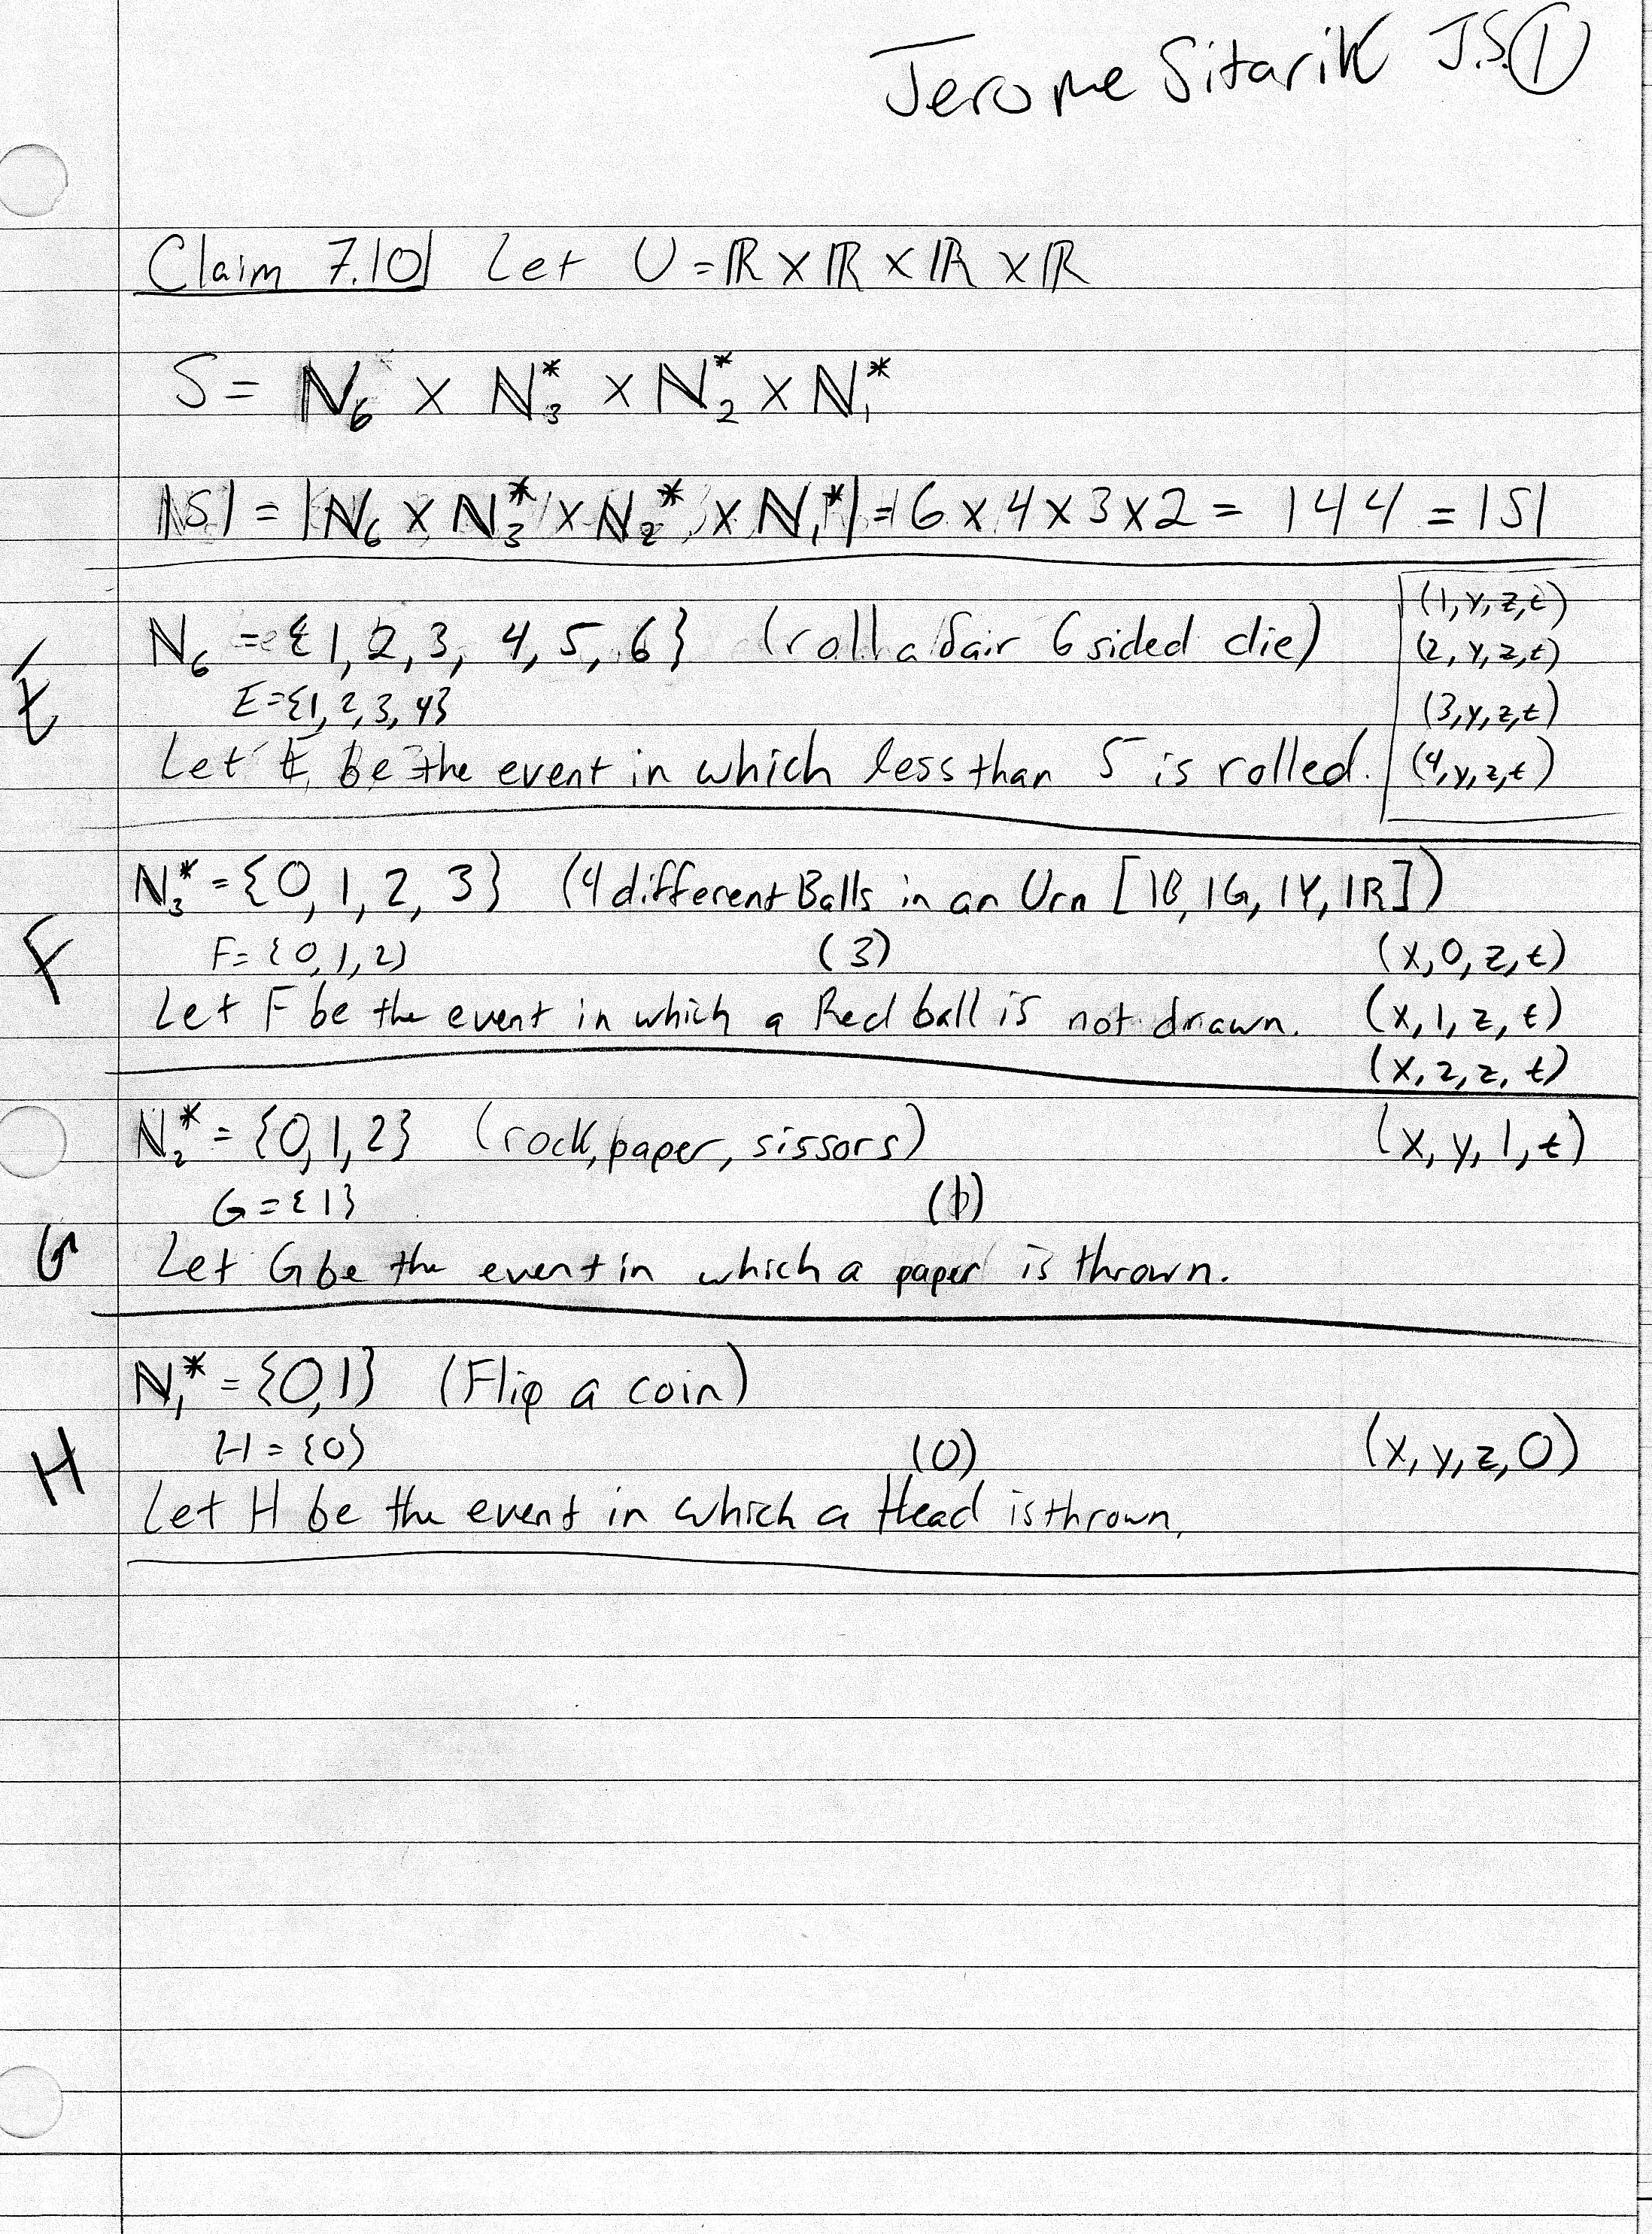 Jerome Sitarik J.S. ①
Claim 7.10 Let U = ℝ × ℝ × ℝ × ℝ
S = ℕ₆ × ℕ₃* × ℕ₂* × ℕ₁*
|S| = |ℕ₆ × ℕ₃* × ℕ₂* × ℕ₁*| = 6 × 4 × 3 × 2 = 144 = |S|
(1, y, z, t)
ℕ₆ = {1, 2, 3, 4, 5, 6} (roll a fair 6 sided die) (2, y, z, t)
E E = {1, 2, 3, 4} (3, y, z, t)
Let E be the event in which less than 5 is rolled. (4, y, z, t)
ℕ₃* = {0, 1, 2, 3} (4 different Balls in an Urn [1B, 1G, 1Y, 1R])
F F = {0, 1, 2} (3) (x, 0, z, t)
Let F be the event in which a Red ball is not drawn. (x, 1, z, t)
(x, 2, z, t)
ℕ₂* = {0, 1, 2} (rock, paper, sissors) (x, y, 1, t)
G = {1} (1)
G Let G be the event in which a paper is thrown.
ℕ₁* = {0, 1} (Flip a coin)
H H = {0} (0) (x, y, z, 0)
Let H be the event in which a Head is thrown.